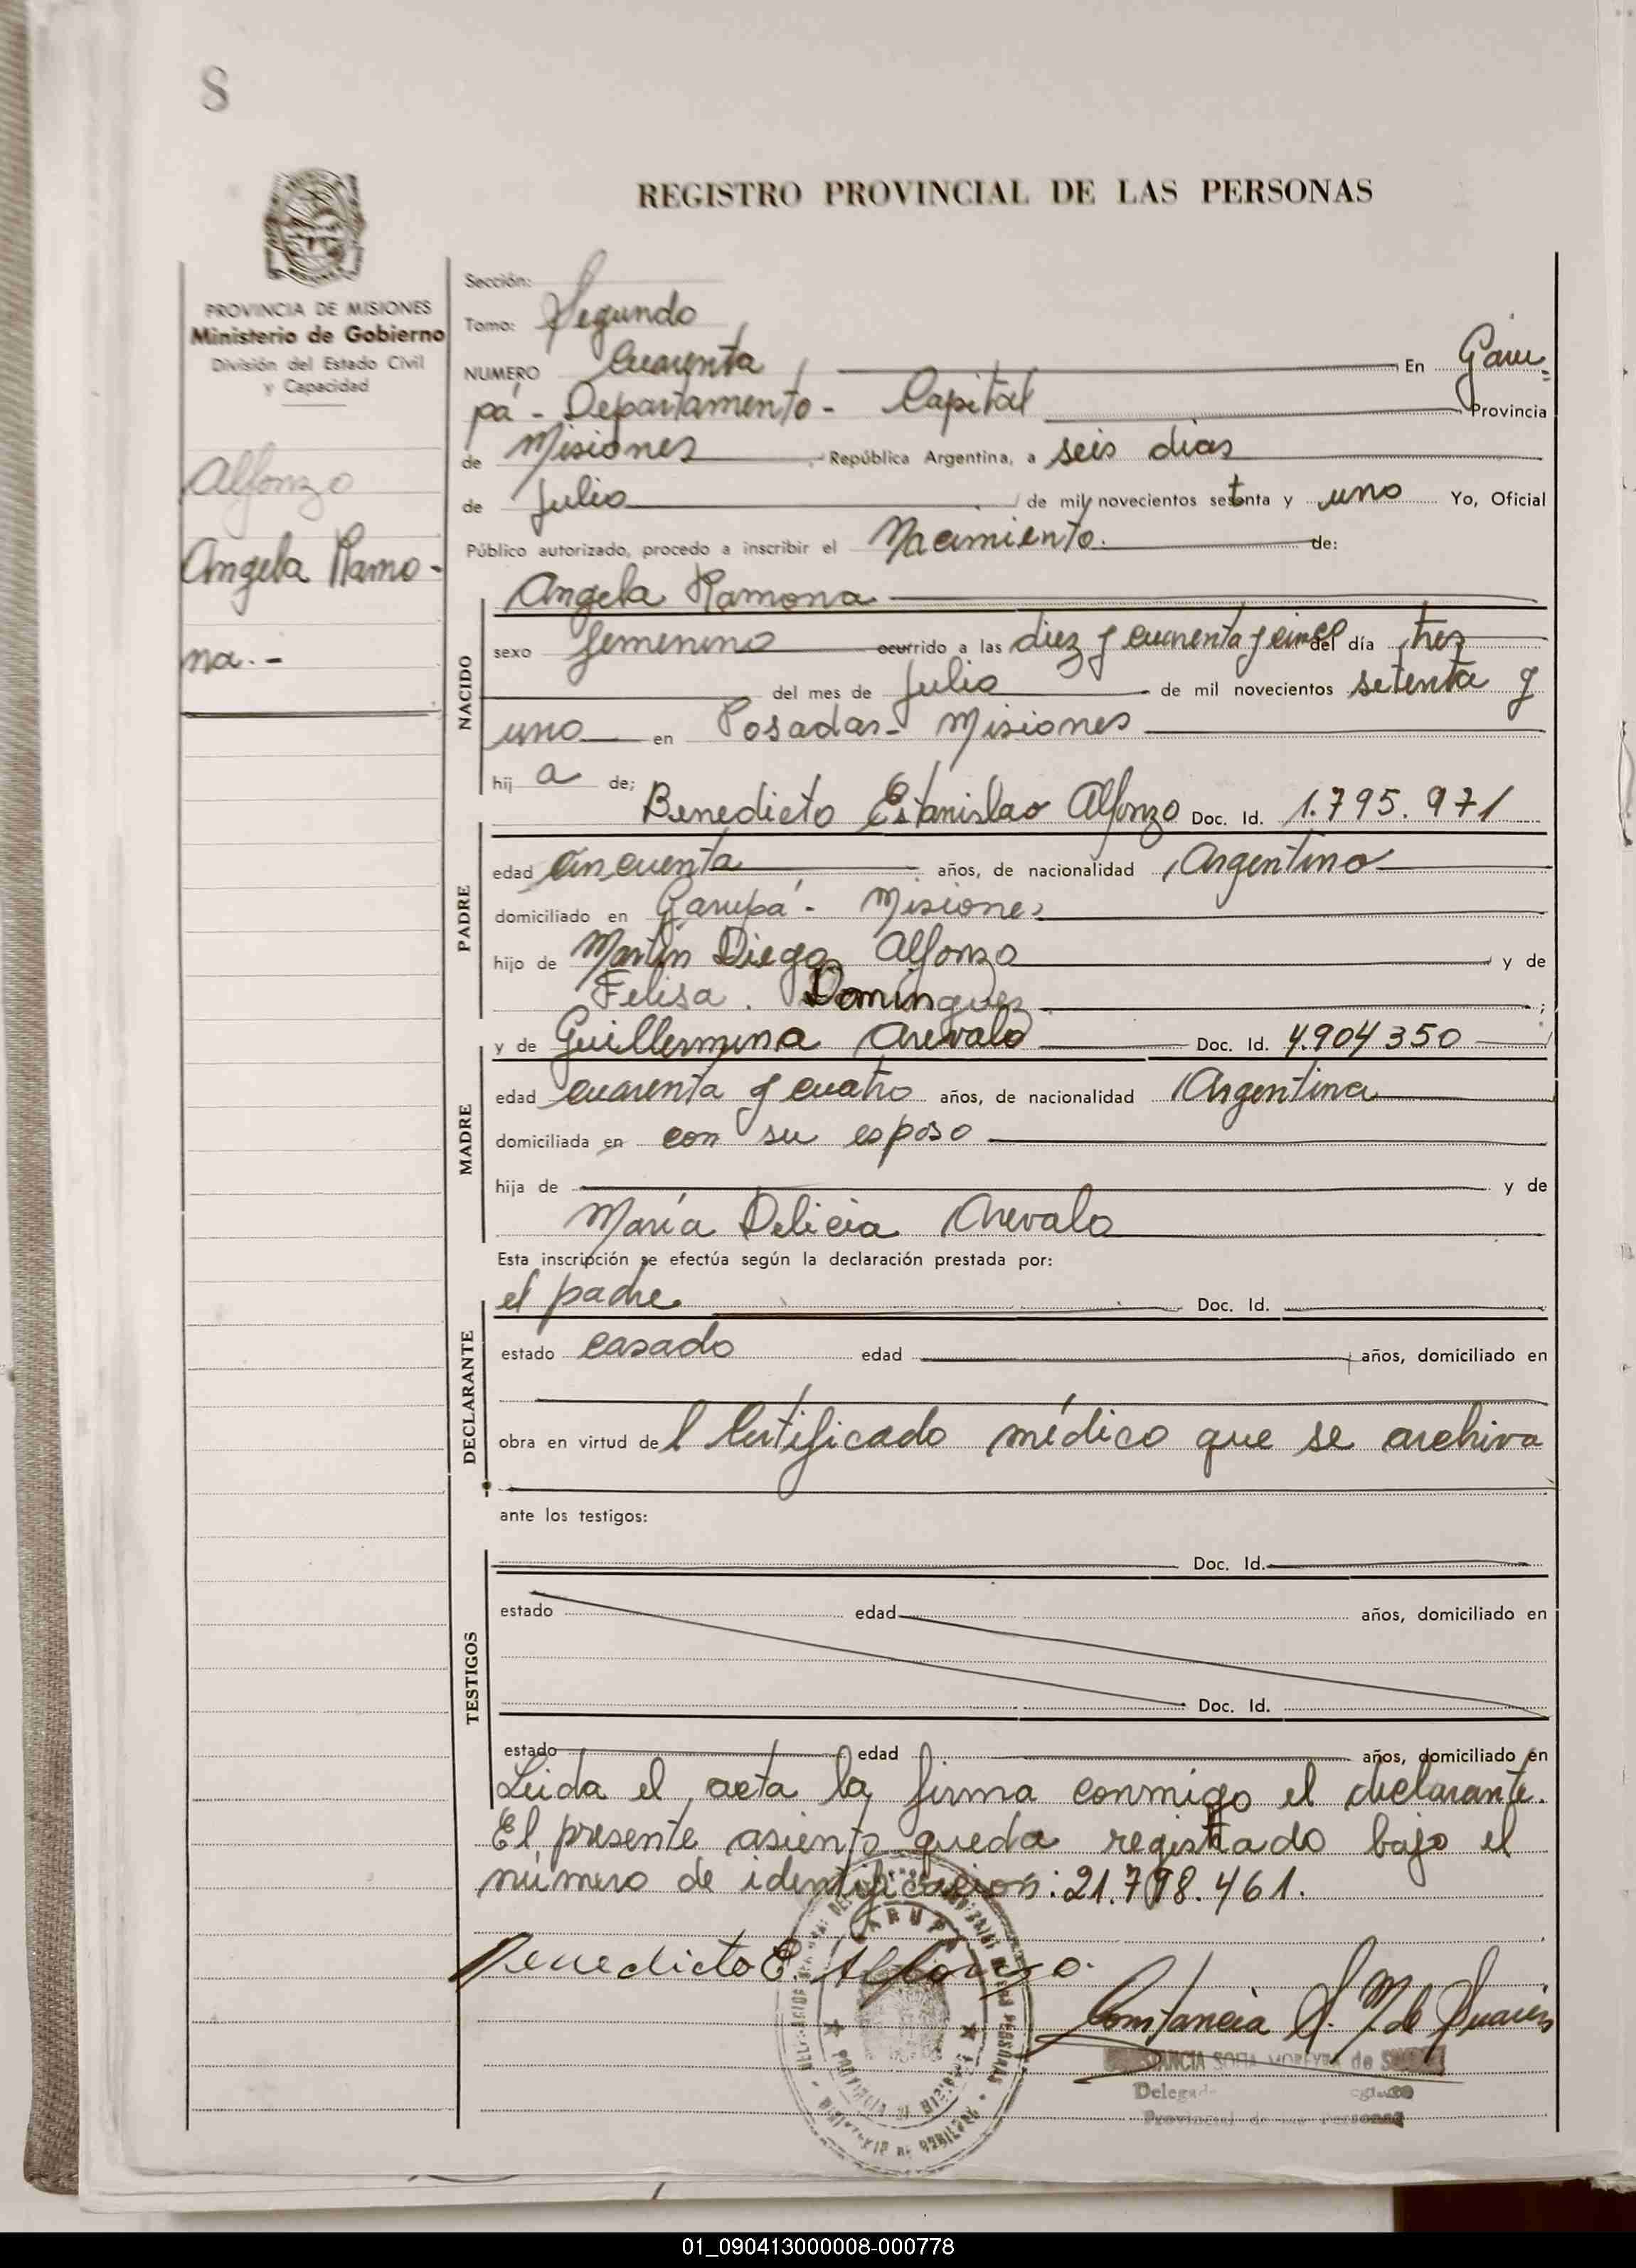 8
REGISTRO PROVINCIAL DE LAS PERSONAS
PROVINCIA DE MISIONES
Ministerio de Gobierno
División del Estado Civil
y Capacidad
Alfonzo
Angela Ramo-
na.-
Sección:
Tomo: Segundo
NUMERO Cuarenta En Garu=
pá - Departamento - Capital Provincia
de Misiones República Argentina, a seis dias
de Julio de mil novecientos setenta y uno Yo, Oficial
Público autorizado, procedo a inscribir el Nacimiento. de:
Angela Ramona
NACIDO
sexo femenino ocurrido a las diez y cuarenta y cinco del día tres
del mes de Julio de mil novecientos setenta y
uno en Posadas - Misiones
hij a de;
Benedicto Estanislao Alfonzo Doc. Id. 1.795.971
PADRE
edad cincuenta años, de nacionalidad Argentino
domiciliado en Garupá - Misiones
hijo de Martín Diego Alfonzo y de
Felisa. Dominguez ;
y de Guillermina Arevalo Doc. Id. 4.904350
MADRE
edad cuarenta y cuatro años, de nacionalidad Argentina
domiciliada en con su esposo
hija de y de
María Delicia Arevalo
Esta inscripción se efectúa según la declaración prestada por:
el padre Doc. Id.
DECLARANTE
estado casado edad años, domiciliado en
obra en virtud del Certificado médico que se archiva
ante los testigos:
Doc. Id.
TESTIGOS
estado edad años, domiciliado en
Doc. Id.
estado edad años, domiciliado en
Leida el acta la firma conmigo el declarante.
El presente asiento queda registrado bajo el
número de identificacion: 21.798.461.
Benedicto E. Alfonzo.
Constancia S. M. de Suarez
SOFIA MOREYRA de
Provincial de las Personas
01_090413000008-000778